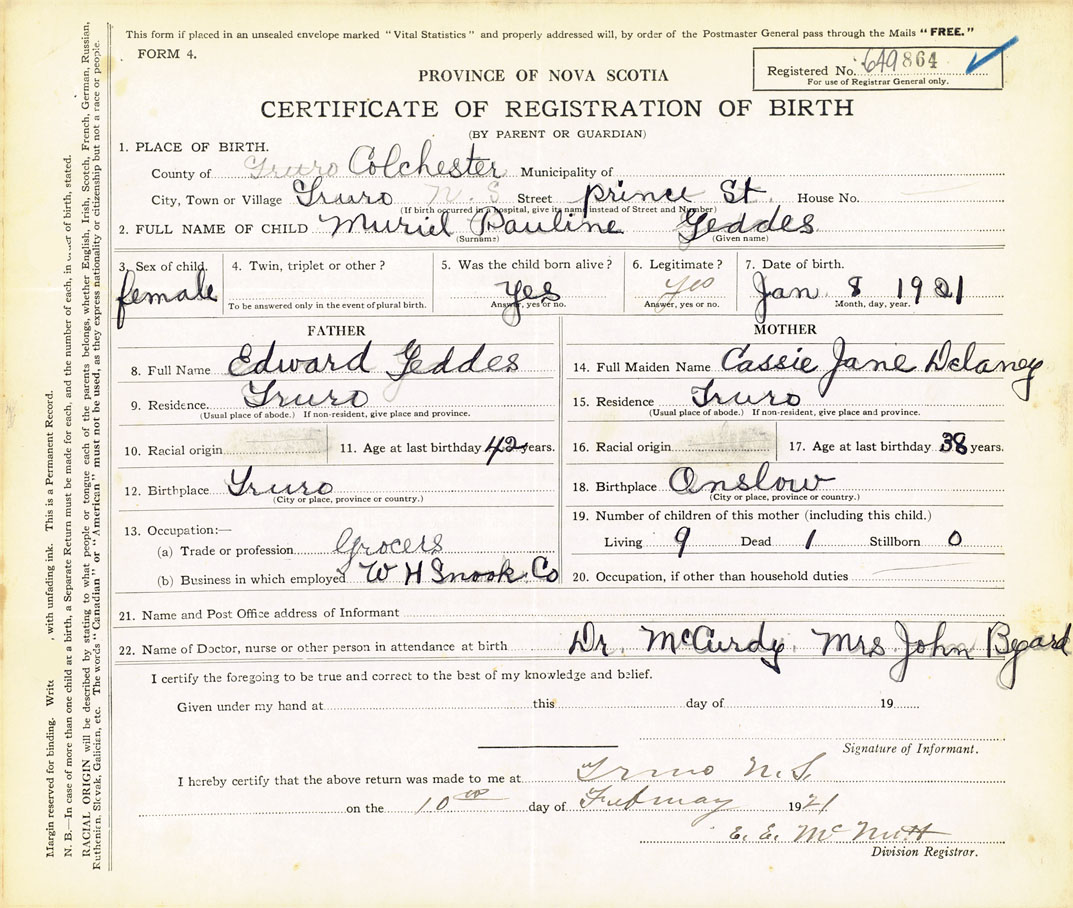 This form if placed in an unsealed envelope marked "Vital Statistics" and properly addressed will, by order of the Postmaster General pass through the Mails "FREE."
FORM 4.
Registered No. 649864
For use of Registrar General only.
PROVINCE OF NOVA SCOTIA
CERTIFICATE OF REGISTRATION OF BIRTH
(BY PARENT OR GUARDIAN)
1. PLACE OF BIRTH.
County of Truro Colchester Municipality of
City, Town or Village Truro N.S Street prince St. House No.
(If birth occurred in a hospital, give its name instead of Street and Number)
2. FULL NAME OF CHILD Muriel Pauline Geddes
(Surname) (Given name)
3. Sex of child. female
4. Twin, triplet or other?
To be answered only in the event of plural birth.
5. Was the child born alive? Yes
Answer, yes or no.
6. Legitimate? yes
Answer, yes or no.
7. Date of birth.
Jan 8 1921
Month, day, year.
FATHER
8. Full Name Edward Geddes
9. Residence. Truro
(Usual place of abode.) If non-resident, give place and province.
10. Racial origin 11. Age at last birthday 42 years.
12. Birthplace Truro
(City or place, province or country.)
13. Occupation:—
(a) Trade or profession Grocers
(b) Business in which employed W H Snook Co
MOTHER
14. Full Maiden Name Cassie Jane Delaney
15. Residence Truro
(Usual place of abode.) If non-resident, give place and province.
16. Racial origin 17. Age at last birthday 38 years.
18. Birthplace Onslow
(City or place, province or country.)
19. Number of children of this mother (including this child.)
Living 9 Dead 1 Stillborn 0
20. Occupation, if other than household duties
21. Name and Post Office address of Informant
22. Name of Doctor, nurse or other person in attendance at birth Dr. McCurdy. Mrs John Byard
I certify the foregoing to be true and correct to the best of my knowledge and belief.
Given under my hand at this day of 19
Signature of Informant.
I hereby certify that the above return was made to me at Truro N.S.
on the 10 day of February 1921
E. E. McNutt
Division Registrar.
Margin reserved for binding. Write with unfading ink. This is a Permanent Record.
N. B.—In case of more than one child at a birth, a Separate Return must be made for each, and the number of each, in of birth, stated.
RACIAL ORIGIN will be described by stating to what people or tongue each of the parents belongs, whether English, Irish, Scotch, French, German, Russian,
Ruthenian, Slovak, Galician, etc. The words "Canadian" or "American" must not be used, as they express nationality or citizenship but not a race or people.